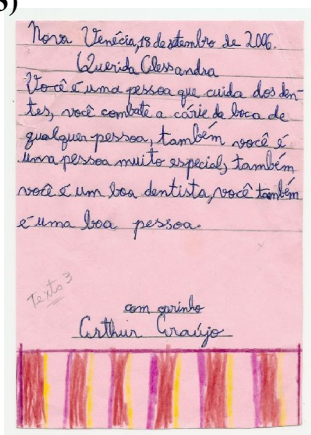 3)
Nova Venécia, 18 de setembro de 2006.
Querida Alessandra
Você é uma pessoa que cuida dos den-
tes, você combate a cárie da boca de
qualquer pessoa, também você é
uma pessoa muito especial, também
você é um boa dentista, você também
é uma boa pessoa.
Texto 3
com carinho
Arthur Araújo